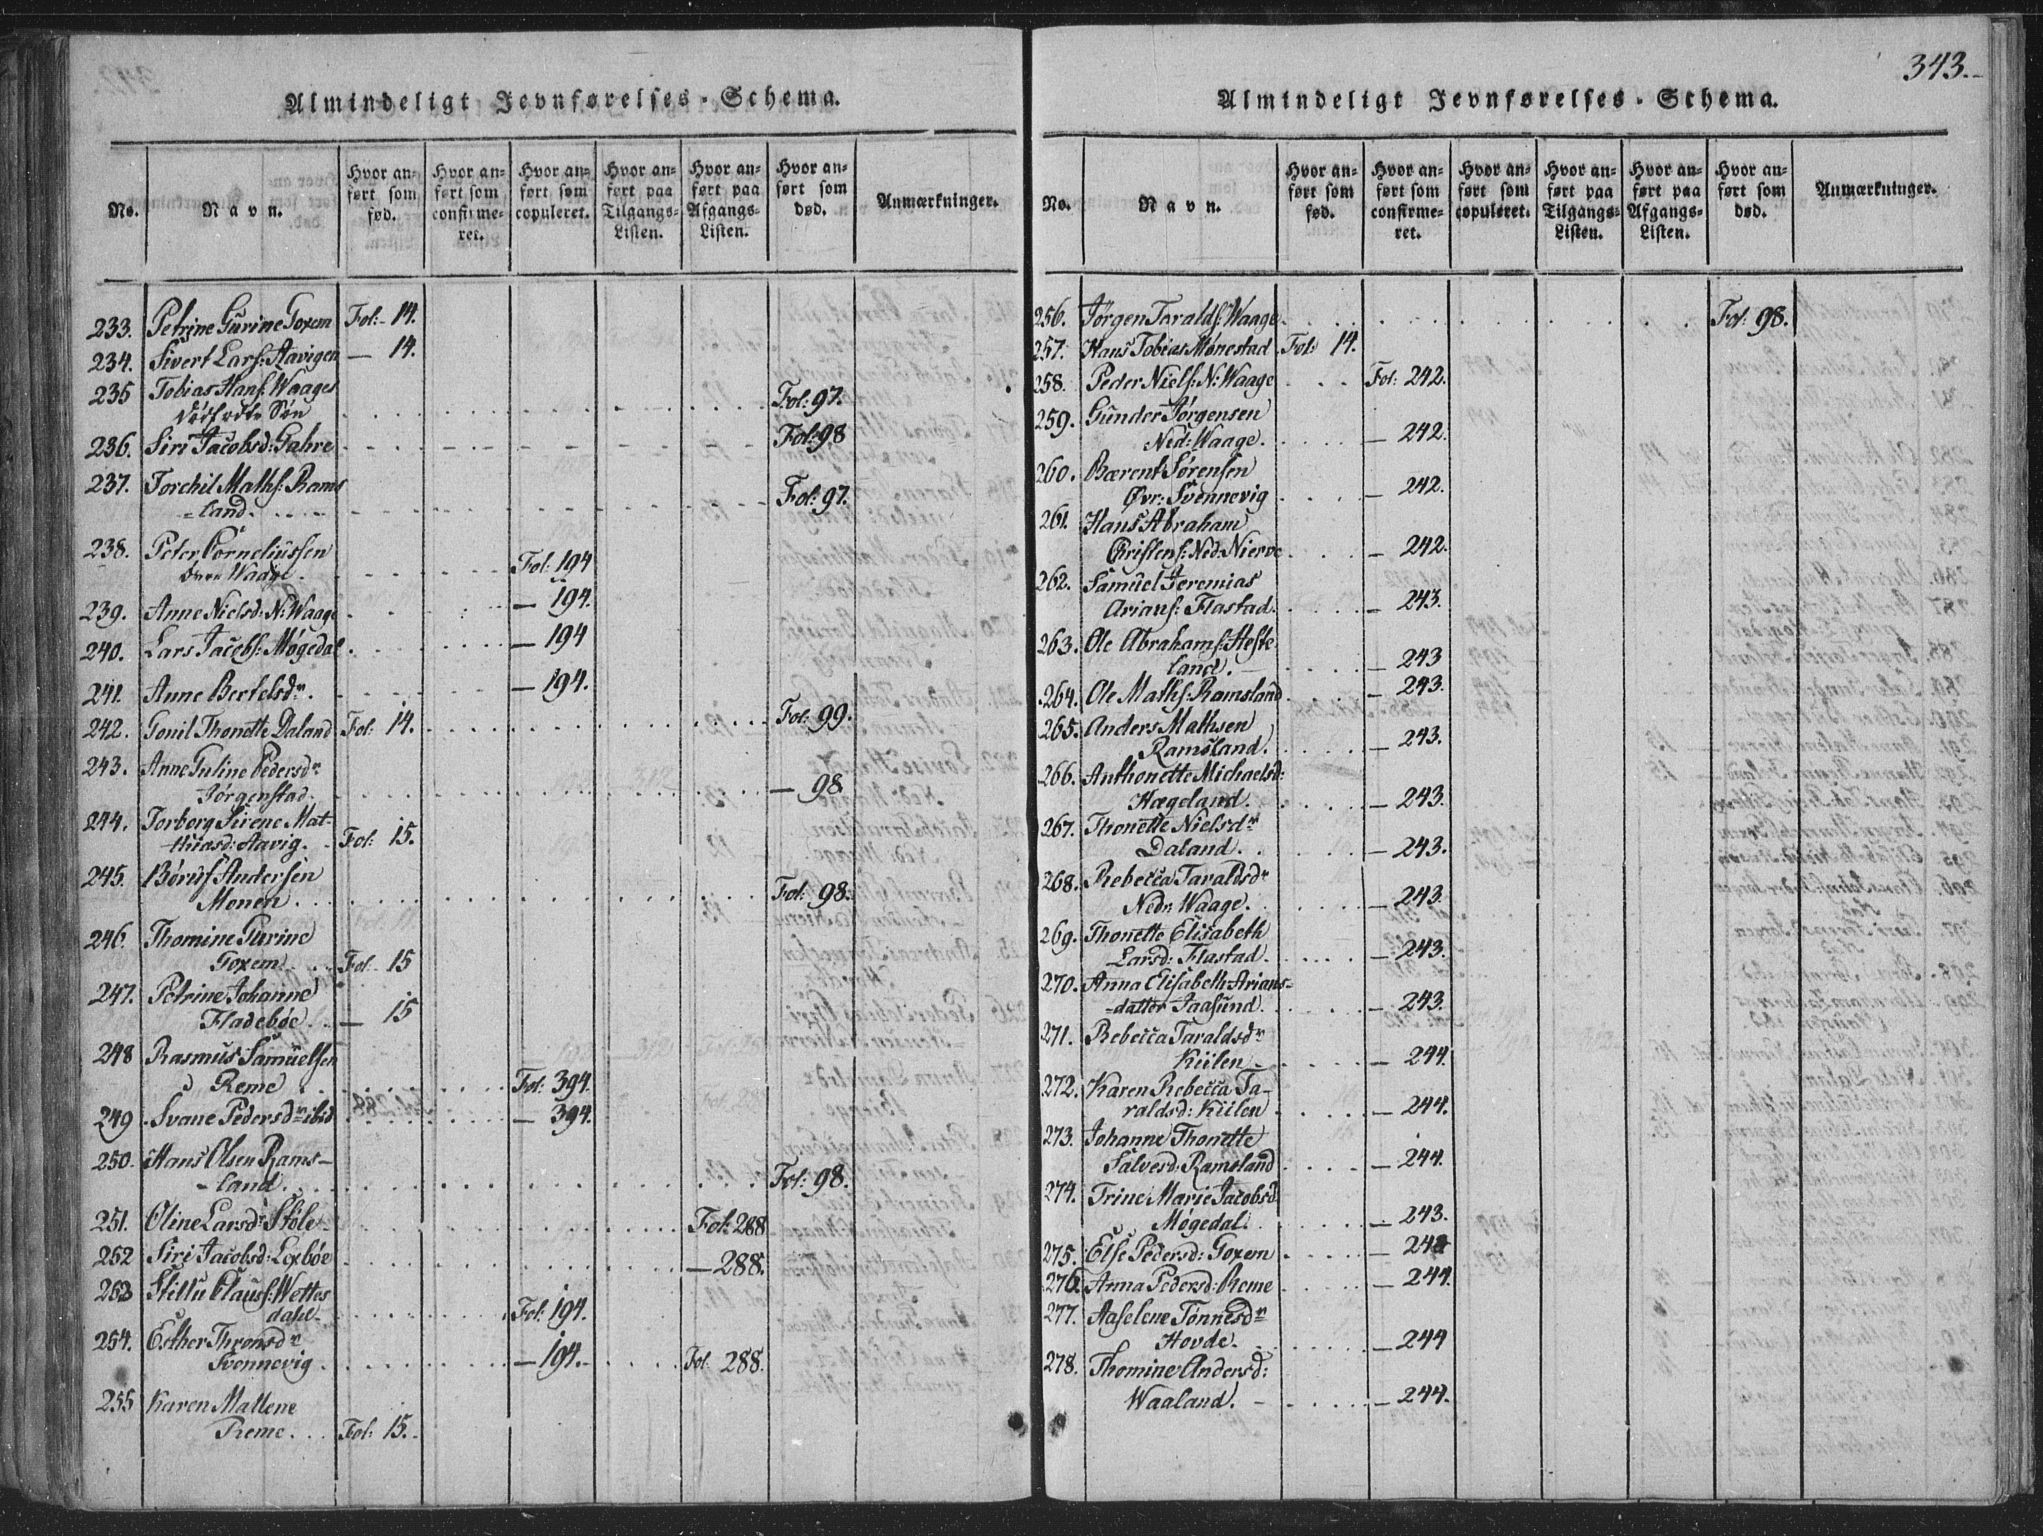 Almindeligt Jevnførelses-Schema.
No. Navn. Hvor anført som fød. Hvor anført som confirmeret. Hvor anført som copuleret. Hvor anført paa Tilgangs-Listen. Hvor anført paa Afgangs-Listen. Hvor anført som død. Anmærkninger.
233. Petrine Gurine Goxem Fol:- 14.
234. Sivert Lars: Aavigen — 14.
235 Tobias Hans: Waages
dødfødte Søn Fol: 97.
236. Siri Jacobsd: Gahre Fol: 98
237. Torchil Maths: Rams
-land. Fol: 97.
238. Peter Corneliussen
Waage. Fol: 194
239. Anne Nielsd: N: Waage — 194.
240. Lars Jacobs: Møgedal — 194
241. Anne Bertelsdr. — 194.
242. Gonil Thonette Daland Fol: 14. Fol: 99.
243. Anne Guline Pedersdr
Jørgenstad. — 98
244. Torborg Sirene Mat-
thiasd: Aavig. Fol: 15.
245. Børus Andersen
Monen. Fol: 98.
246. Thomine Gurine
Goxem. Fol- 15
247. Petrine Johanne
Fladebøe. — 15
248 Rasmus Samuelsen
Reme Fol: 394.
249. Svane Pedersdr ibid — 394.
250. Hans Olsen Rams-
-land. Fol: 98.
251. Oline Larsdr Støle Fol: 288
252 Siri Jacobsd: Lexbøe — 288.
253 Claus: Wettes
dahl- Fol: 194.
254. Esther Thronsdr
Svennevig. — 194.- Fol. 288.
255 Karen Mallene
Reme. Fol: 15.
343.
Almindeligt Jevnførelses-Schema.
No. Navn. Hvor anført som fød. Hvor anført som confirmeret. Hvor anført som copuleret. Hvor anført paa Tilgangs-Listen. Hvor anført paa Afgangs-Listen. Hvor anført som død. Anmærkninger.
256. Jørgen Taralds: Waage. Fol: 98.
257. Hans Tobias Mønestad Fol: 14.
258. Peder Niels: N: Waage Fol: 242.
259. Gunder Jørgensen
Ned: Waage. — 242.
260. Bærent Sørensen
Øvr: Svennevig — 242.
261. Hans Abraham
Christens: Ned: Nierve — 242.
262. Samuel Jeremias
Arians: Flastad. — 243.
263. Ole Abrahams: Hefte
land. — 243
264. Ole Maths: Ramsland — 243.
265. Anders Mathsen
Ramsland. — 243.
266. Anthonette Michaelsd:
Hægeland. — 243.
267. Thonette Nielsdr
Daland. — 243.
268. Rebecca Taraldsdr
Nedr Waage. — 243.
269. Thonette Elisabeth
Larsd: Flastad. — 243.
270. Anna Elisabeth Arians-
-datter Jaasund. — 243.
271. Rebecca Taraldsdr
Kiilen — 244.
272. Karen Rebecca Ta-
raldsd: Kiilen — 244.
273. Johanne Thonette
Salvesd: Ramsland — 244.
274. Trine Marie Jacobsd
Møgedal. — 243.
275. Else Pedersd: Goxem
276. Anna Pedersd: Reme — 244.
277. Aaselene Tønnesdr
Hovde. — 244
278. Thomine Andersd:
Waaland. — 244.